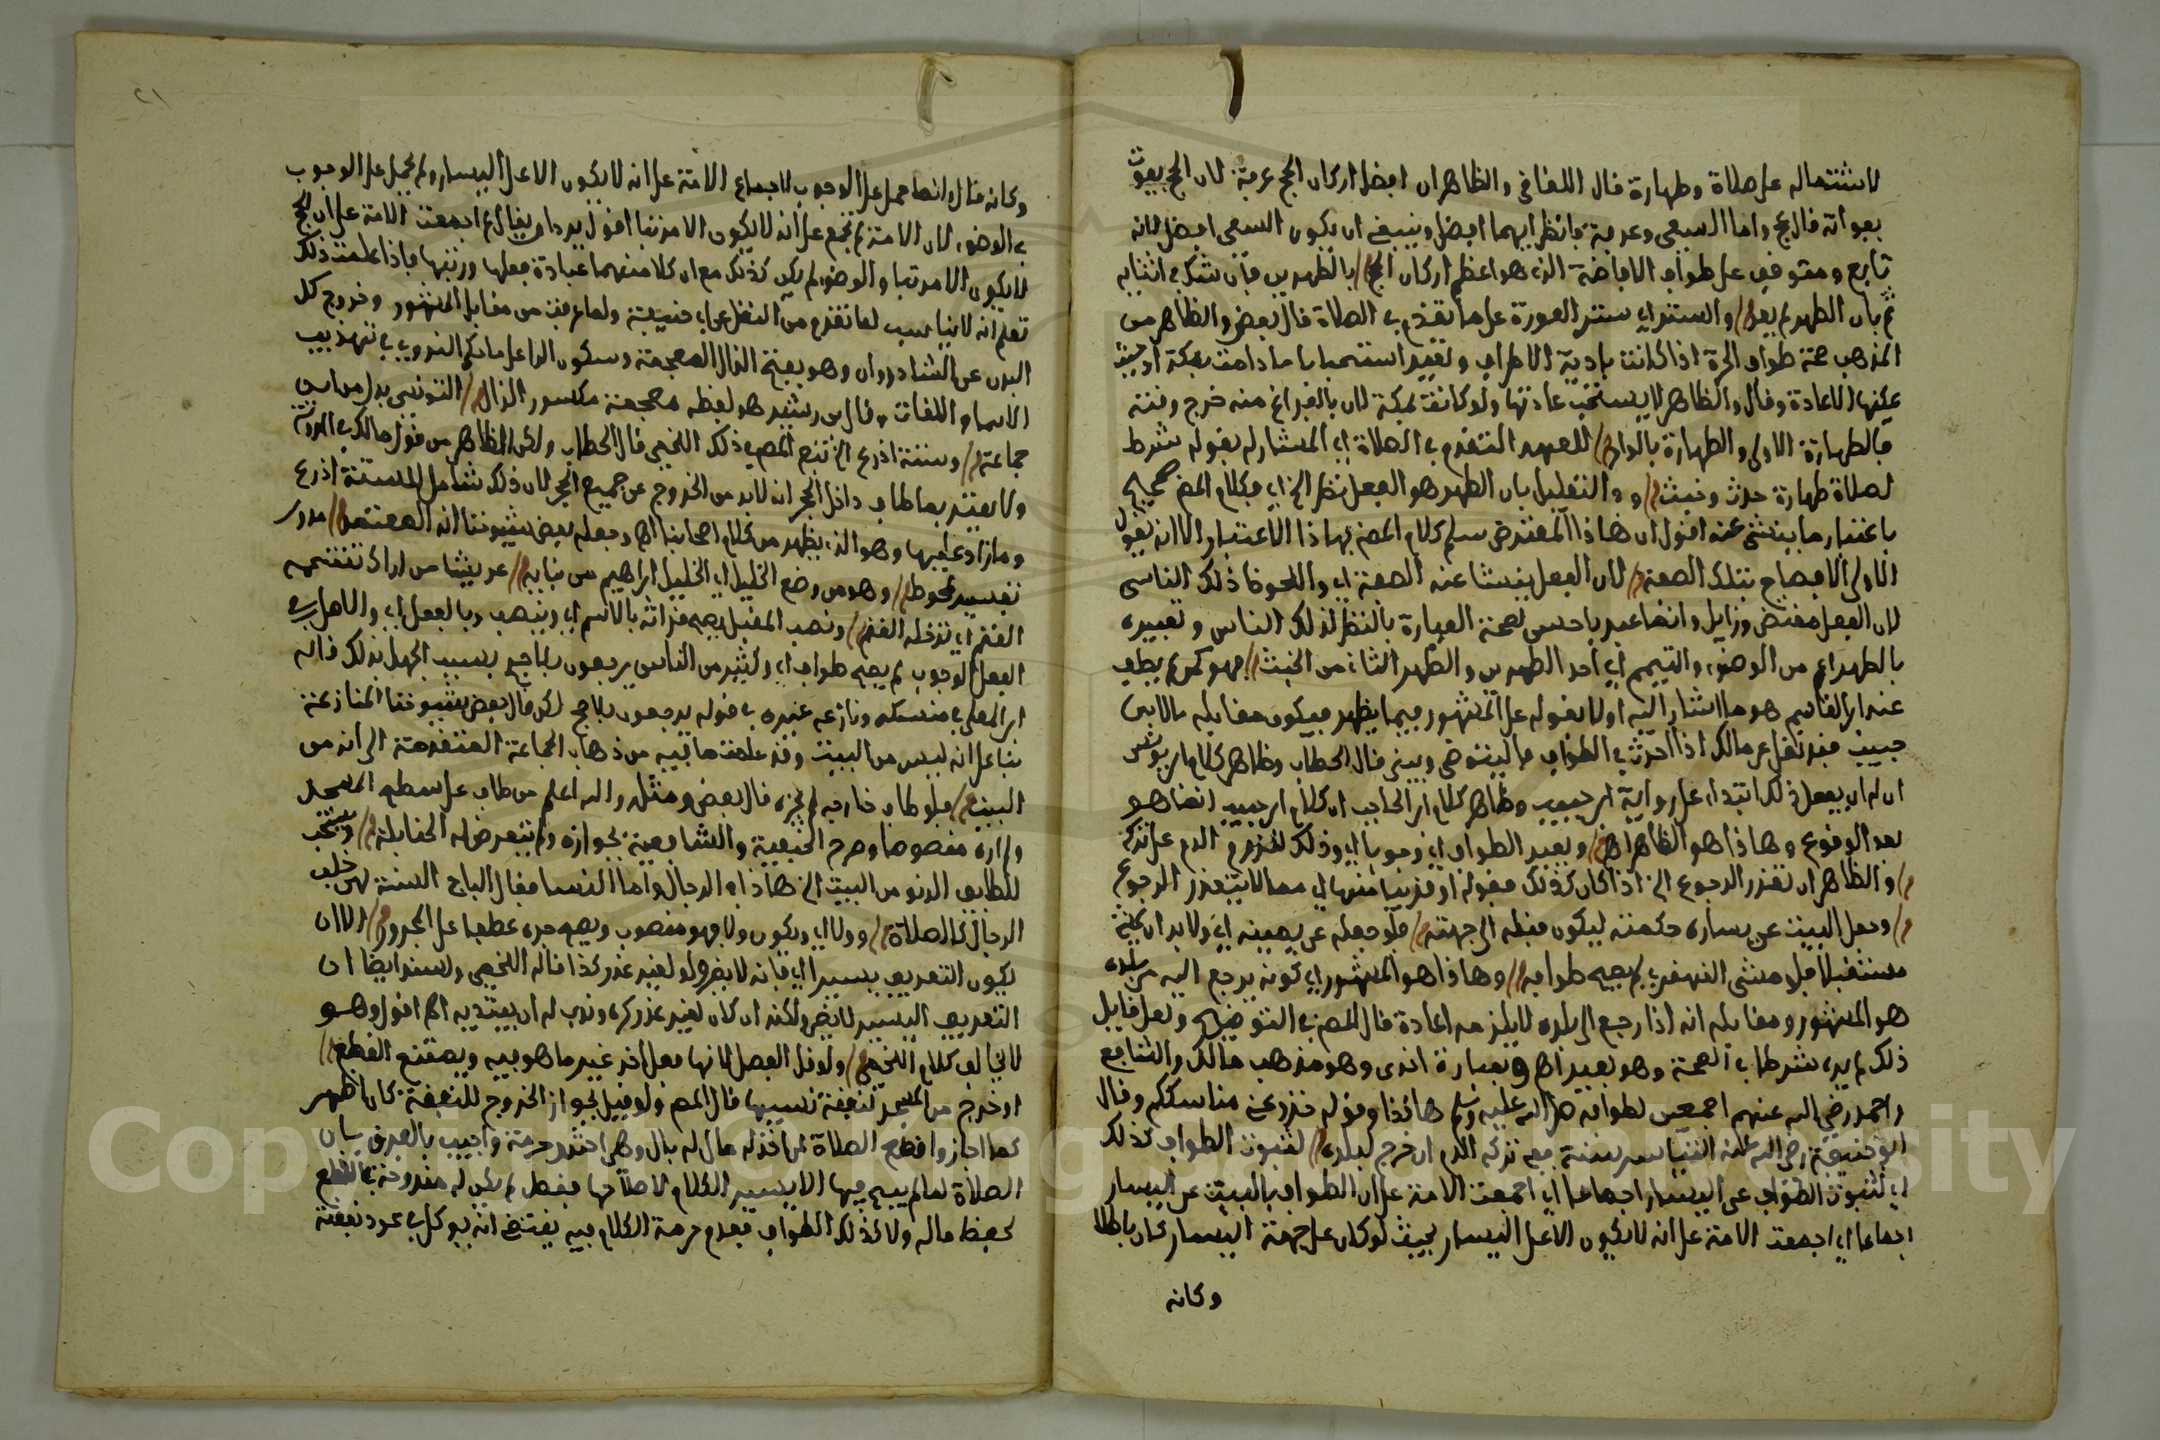 لاشتماله على صلاة وطهارة قال اللقاني والظاهر ان افضل اركان الحج عرفة لان الحج يفوت
بفواته قال عج واما السعي وعرفة فانظر ايهما افضل وينبغي ان يكون السعي افضل لانه
تابع ومتوقف على طواف الافاضة الذي هو اعظم اركان الحج بالطهرين فان شك في اثنائه
ثم بان الطهر لم يعد والستر اي ستر العورة على ما تقدم في الصلاة قال بعض والظاهر من
المذهب صحة طواف الحرة اذا كانت بادية الاطراف وتعيد استحبابا ما دامت بمكة او حيث
يمكنها الاعادة وقال والظاهر لا يستحب عادتها ولو كانت بمكة لان بالفراغ منه خرج وقته
فالطهارة الاولى والطهارة بالواو للعهد المتقدم في الصلاة اي المشار له بقوله شرط
لصلاة طهارة حدث وخبث والتعليل بان الطهر هو الفعل نظر الخ اي فكلام المص صحيح
باعتبار ما ينشئ عنه اقول ان هاذا المعترض سلم كلام المص بهاذا الاعتبار الا انه يقول
الاولى الافصاح بتلك الصفة لان الفعل ينشا عنه الصفة اي والملحوظ ذلك الناشي
لان الفعل مقتض وزايل وانما عبر باحسن لصحة العبارة بالنظر لذلك الناس وتعبيره
بالطهر اعم من الوضوء والتيمم اي احد الطهرين والطهر الثاني من الخبث فهو كمن لم يطف
عند ابن القاسم هو ما اشار اليه اولا بقوله على المشهور فيما يظهر فيكون مقابله ما لابن
حبيب فقد نقل عن مالك اذا احدث في الطواف فاليتوضى ويبنى قال الحطاب وظاهر كلام ابن يونس
ان له ان يفعل ذلك ابتداء على رواية ابن حبيب وظاهر كلام ابن الحاجب ان كلام ابن حبيب انما هو
بعد الوقوع وهاذا هو الظاهر اهـ ويعيد الطواف اي وجوبا اي وذلك للزوم الدم على تركه
والظاهر ان تعذر الرجوع الخ اذا كان كذلك فقوله او قريبا منها اي مما لا يتعذر الرجوع
وجعل البيت عن يساره حكمته ليكون قبله الى جهته فلو جعله عن يمينه اي ولا بد ان يكون
مستقبلا فلو مشى القهقري لم يصح طوافه وهاذا هو المشهور اي كونه يرجع اليه من بلده
هو المشهور ومقابله انه اذا رجع الى بلده لا يلزمه اعادة قال المص في التوضيح ولعل قايل
ذلك لم يره شرطا في الصحة وهو بعيد اهـ وبعبارة اخرى وهو مذهب مالك والشافعي
واحمد رضي الله عنهم اجمعين لطوافه صلى الله عليه وسلم هاكذا وقوله خذوا عني مناسككم وقال
ابو حنيفة رضي الله عنه التياسر سنة مع تركه الدم ان خرج لبلده لثبوت الطواف كذلك
اي لثبوت الطواف على اليسار اجماعا اي اجمعت الامة على ان الطواف بالبيت عن اليسار
اجماعا اي اجمعت الامة على انه لا يكون الا على اليسار بحيث لو كان على جهة اليسار كان باطلا
وكانه
٢١
وكانه قال وانما حمل على الوجوب لاجماع الامة على انه لا يكون الا على اليسار ولم يحمل على الوجوب
في الوضوء لان الامة لم تجمع على انه لا يكون الا مرتبا اقول يرد او يقال لم اجمعت الامة على ان الحج
لا يكون الا مرتبا والوضوء لم يكن كذلك مع ان كلا منهما عبادة فعلها ورتبها فاذا علمت ذلك
تعلم انه لا يناسب لما تقدم من النقل عن ابي حنيفة ولما عرفت من مقابل المشهور وخروج كل
البدن عن الشاذروان وهو بفتح الذال المعجمة وسكون الراء على ما ذكره النووي في تهذيب
الاسماء واللغات وقال ابن رشيد هو لفظه معجمة مكسور الذال التونسي بدل من ابي
جماعة وستة اذرع الخ تبع المص في ذلك اللخمي قال الحطاب ولاكن الظاهر من قول مالك في المدونة
ولا يعتد بما طاف داخل الحجر انه لابد من الخروج عن جميع الحجر لان ذلك شامل للستة اذرع
وما زاد عليها وهو الذي يظهر من كلام اصحابنا اهـ وجعله بعض شيوخنا انه المعتمد مدور
تفسير محوط وهو من وضع الخليل اي الخليل ابراهيم من بنايه عريشا من اراك تقتحمه
الغنم اي تدخله الغنم ونصب المقبل يصح قراءته بالاسم اي وينصب وبالفعل اي والاصل في
الفعل الوجوب لم يصح طوافه اي وكثير من الناس يرجعون بلا حج بسبب الجهل بذلك قاله
ابن المعلى في منسكه ونازعه غيره في قوله يرجعون بلا حج لكن قال بعض شيوخنا المنازعة
بناء على انه ليس من البيت وقد علمت ما فيه من ذهاب الجماعة المتقدمة الى انه من
البيت فلو طاف خارجه لم يجزه قال بعض ومثله والله اعلم من طاف على سطح المسجد
ولم اره منصوصا وصرح الحنفية والشافعية بجوازه ولم يتعرض له الحنابلة ويستحب
للطايف الدنو من البيت الخ هاذا في الرجال واما النساء فقال الباجي السنة لهن خلف
الرجال كالصلاة وولاء اي ويكون ولاء فهو منصوب ويصح جره عطفا على المجرور الا ان
يكون التفريق يسيرا اي فانه لا يضر ولو لغير عذر كذا قاله اللخمي ولسند ايضا ان
التفريق اليسير لا يضر ولكنه ان كان لغير عذر كره وندب له ان يبتديه اهـ اقول وهو
لا يخالف كلام اللخمي ولو قل الفصل لانها فعل اخر غير ما هو فيه ويمتنع القطع
او خرج من المسجد لنفقة نسيها قال المص ولو قيل بجواز الخروج للنفقة كان اظهر
كما اجازوا قطع الصلاة لمن اخذ له مال له بال وهي اشد حرمة واجيب بالفرق بان
الصلاة لما لم يبح فيها الا يسير الكلام لاصلاحها فقط لم يكن له مندوحة في القطع
لحفظ ماله ولا كذلك الطواف فعدم حرمة الكلام فيه يقتضي انه يوكل في عود نفقته